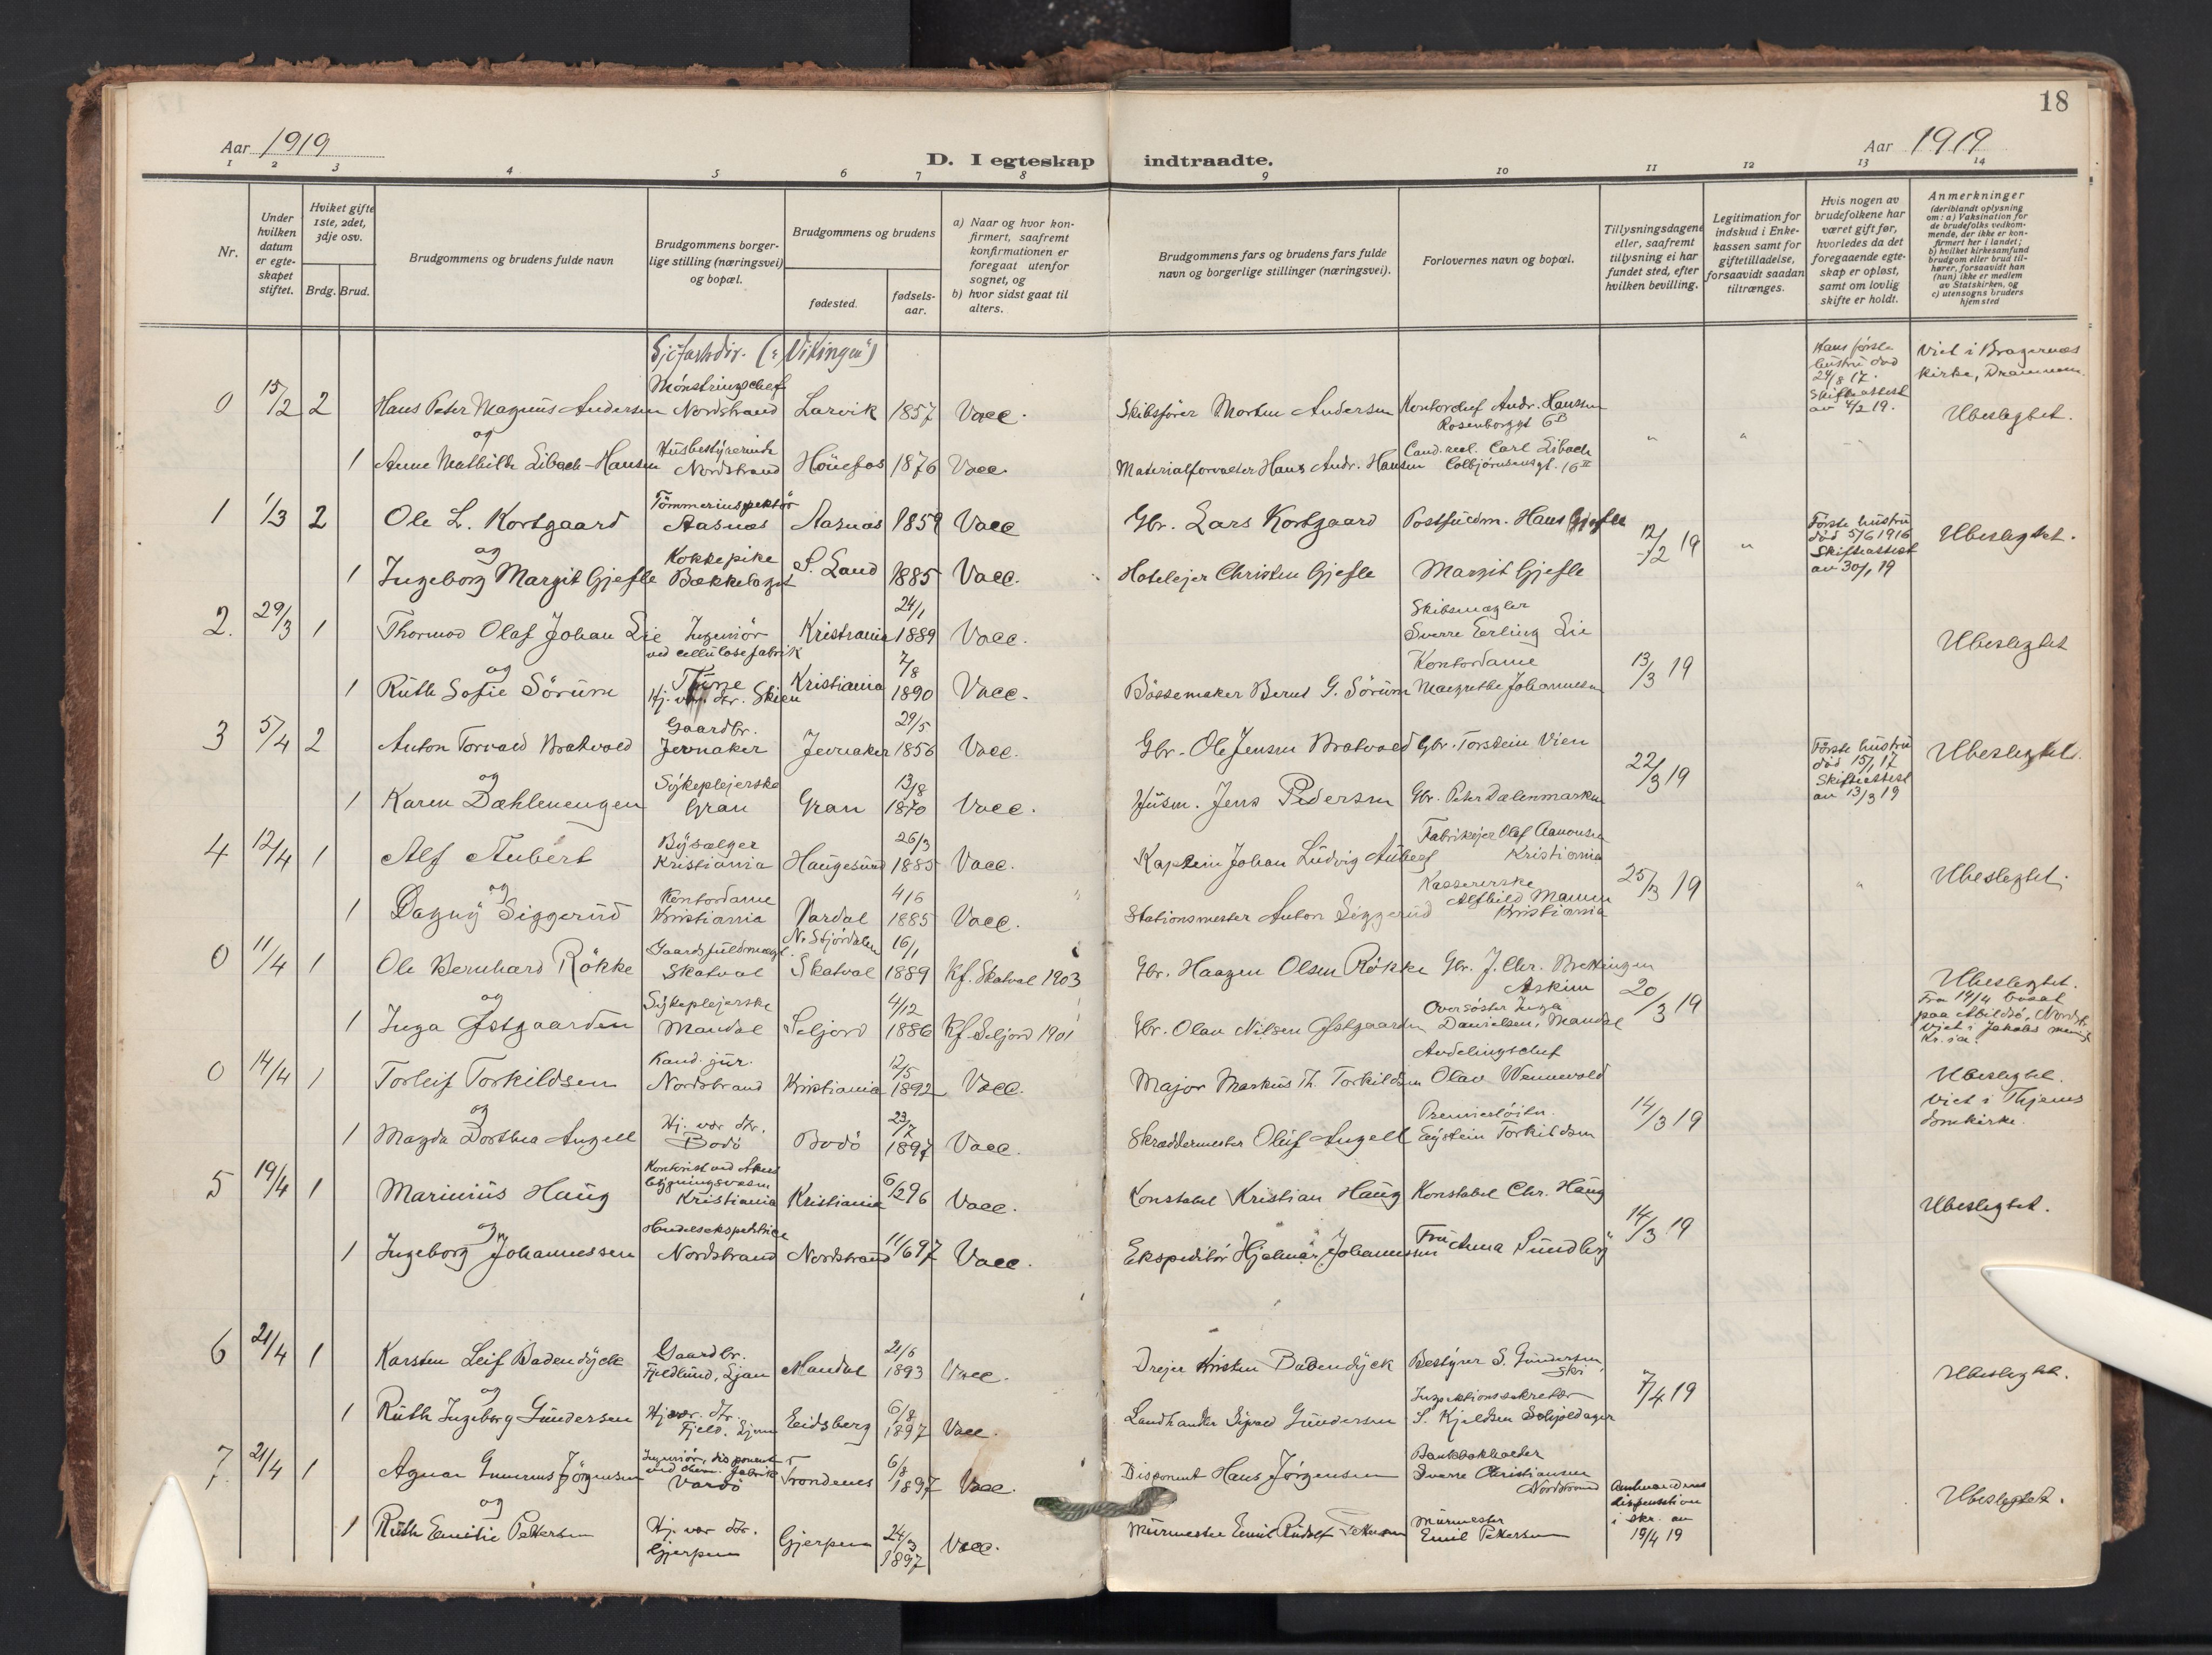 18
Aar 1919
D. I egteskap indtraadte.
Aar 1919
1 2 3 4 5 6 7 8 9 10 11 12 13 14
Nr.
Under hvilken datum er egteskapet stiftet.
Hviket gifte 1ste, 2det, 3dje osv.
Brdg. Brud.
Brudgommens og brudens fulde navn
Brudgommens borgerlige stilling (næringsvei) og bopæl.
Brudgommens og brudens
fødested.
fødsels-aar.
a) Naar og hvor konfirmert, saafremt konfirmationen er foregaat utenfor sognet, og
b) hvor sidst gaat til alters.
Brudgommens fars og brudens fars fulde navn og borgerlige stillinger (næringsvei).
Forlovernes navn og bopæl.
Tillysningsdagene eller, saafremt tillysning ei har fundet sted, efter hvilken bevilling.
Legitimation for indskud i Enkekassen samt for giftetilladelse, forsaavidt saadan tiltrænges.
Hvis nogen av brudefolkene har været gift før, hvorledes da det foregaaende egteskap er opløst, samt om lovlig skifte er holdt.
Anmerkninger (deriblandt oplysning om: a) Vaksination for de brudefolks vedkommende, der ikke er konfirmert her i landet; b) hvilket kirkesamfund brudgom eller brud tilhører, forsaavidt han (hun) ikke er medlem av Statskirken, og c) utensogns bruders hjemsted
0 15/2 2 Hans Peter Magnus Andersen Mönstringschef Nordstrand Larvik 1857 Vacc. Skibsfører Morten Andersen Kontorchef Andr. Hanssen Rosenborggt 6B Hans første hustru död 24/8 17. Skifteattest av 4/2 19. Viet i Bragernæs kirke, Drammen. Ubeslegtet.
og
1 Anne Mathilde Eibach-Hansen Husbestyrerinde Nordstrand Hönefos 1876 Vacc. Materialforvalter Hans Andr. Hansen Cand. real. Carl Eibach Colbjørnsensgt. 16 II
1 1/3 2 Ole L. Kortgaard Tömmerinspektör Aasnæs Aasnæs 1859 Vacc Gbr. Lars Kortgaard Postfuldm. Hans Gjefle 12/2 19 Første hustru död 5/6 1916 Skifteattest av 30/1 19 Ubeslegtet.
og
1 Ingeborg Margit Gjefle Kokkepike Bækkelaget S. Land 1885 Vacc. Hotelejer Christen Gjefle Margit Gjefle
2. 29/3 1 Thormod Olaf Johan Lie Ingeniör ved cellulosefabrik Kristiania 24/1 1889 Vacc. Skibsmægler Sverre Erling Lie 13/3 19 Ubeslegtet
og
1 Ruth Sofie Sörum Hj. vær. dtr. Skien Kristiania 7/8 1890 Vacc. Bössemaker Bernt G. Sörum Kontordame Margrethe Johannesen
3 5/4 2 Anton Torvald Bratvold Gaardbr. Jevnaker Jevnaker 29/5 1856 Vacc. Gbr. Ole Jensen Bratvold Gbr. Torstein Vien 22/3 19 Første hustru död 15/1 17 Skifteattest av 13/3 19 Ubeslegtet.
og
1 Karen Dæhlenengen Sykeplejerske Gran Gran 13/8 1870 Vacc. Husm. Jens Pedersen Gbr. Peter Dælenmarken
4 12/4 1 Alf Aubert Bysælger Kristiania Haugesund 26/3 1885 Vacc. Kaptein Johan Ludvig Aubert Fabrikejer Olaf Aanonsen Kristiania 25/3 19 Ubeslegtet.
og
1 Dagny Siggerud Kontordame Kristiania Vardal 4/6 1885 Vacc. Stationsmester Anton Siggerud Kassererske Alfhild Kristiania
0 11/4 1 Ole Bernhard Rökke Gaardsfuldmægt. Skatval N. Stjördalen Skatval 16/1 1889 Kf. Skatval 1903 Gbr. Haagen Olsen Rökke Gbr. J. Chr. Brettingen Askim 20/3 19 Ubeslegtet. Fra 14/4 bosat paa Abildsö, Nordst. Viet i Jakobs menigh. Kr.ia.
og
1 Inga Østgaarden Sykeplejerske Mandal Seljord 4/12 1886 Kf. Seljord 1901 Gbr. Olav Nilsen Østgaarden Oversöster Inga Danielsen, Mandal
0 14/4 1 Torleif Torkildsen Kand. jur. Nordstrand Kristiania 12/5 1892 Vacc. Major Markus Th. Torkildsen Avdelingschef Olav Wennevold 14/3 19 Ubeslegtet. Viet i Thjems Domkirke.
og
1 Magda Dorthea Angell Hj. vær dtr. Bodö Bodö 23/7 1897 Vacc. Skræddermester Oluf Angell Premierlöitn. Eystein Torkildsen
5 19/4 1 Marinius Haug Kontorist ved Akers bygningsvæsen Kristiania Kristiania 6/12 96 Vacc. Konstabel Kristian Haug Konstabel Chr. Haug 14/3 19 Ubeslegtet.
og
1 Ingeborg Johannessen Handelsekspeditrice Nordstrand Nordstrand 11/6 97 Vacc. Ekspeditör Hjalmar Johannessen Fru Anna Sundby
6 21/4 1 Karsten Leif Badendyck Gaardbr. Fjeldlund, Ljan Mandal 21/6 1893 Vacc. Drejer Kristen Badendyck Bestyrer S. Gundersen, Ski 7/4 19 Ubeslegtet.
og
1 Ruth Ingeborg Gundersen Hj. vær. dtr. Fjeld. Ljan Eidsberg 6/8 1897 Vacc. Landhandler Sigvard Gundersen Inspektionssekretær S. Kjeldsen Schjoldager
7 21/4 1 Agnar Gunerius Jörgensen Ingeniör, disponent ved chem. fabrik Vardö Trondenes 6/8 1897 Vacc. Disponent Hans Jörgensen Bankbokholder Sverre Christiansen Nordstrand Amtmandens dispensation i skr. av 19/4 19 Ubeslegtet.
og
1 Ruth Emilie Pettersen Hj. vær dtr. Gjerpen Gjerpen 24/3 1897 Vacc. Murmester Emil Rudolf Pettersen Murmester Emil Pettersen